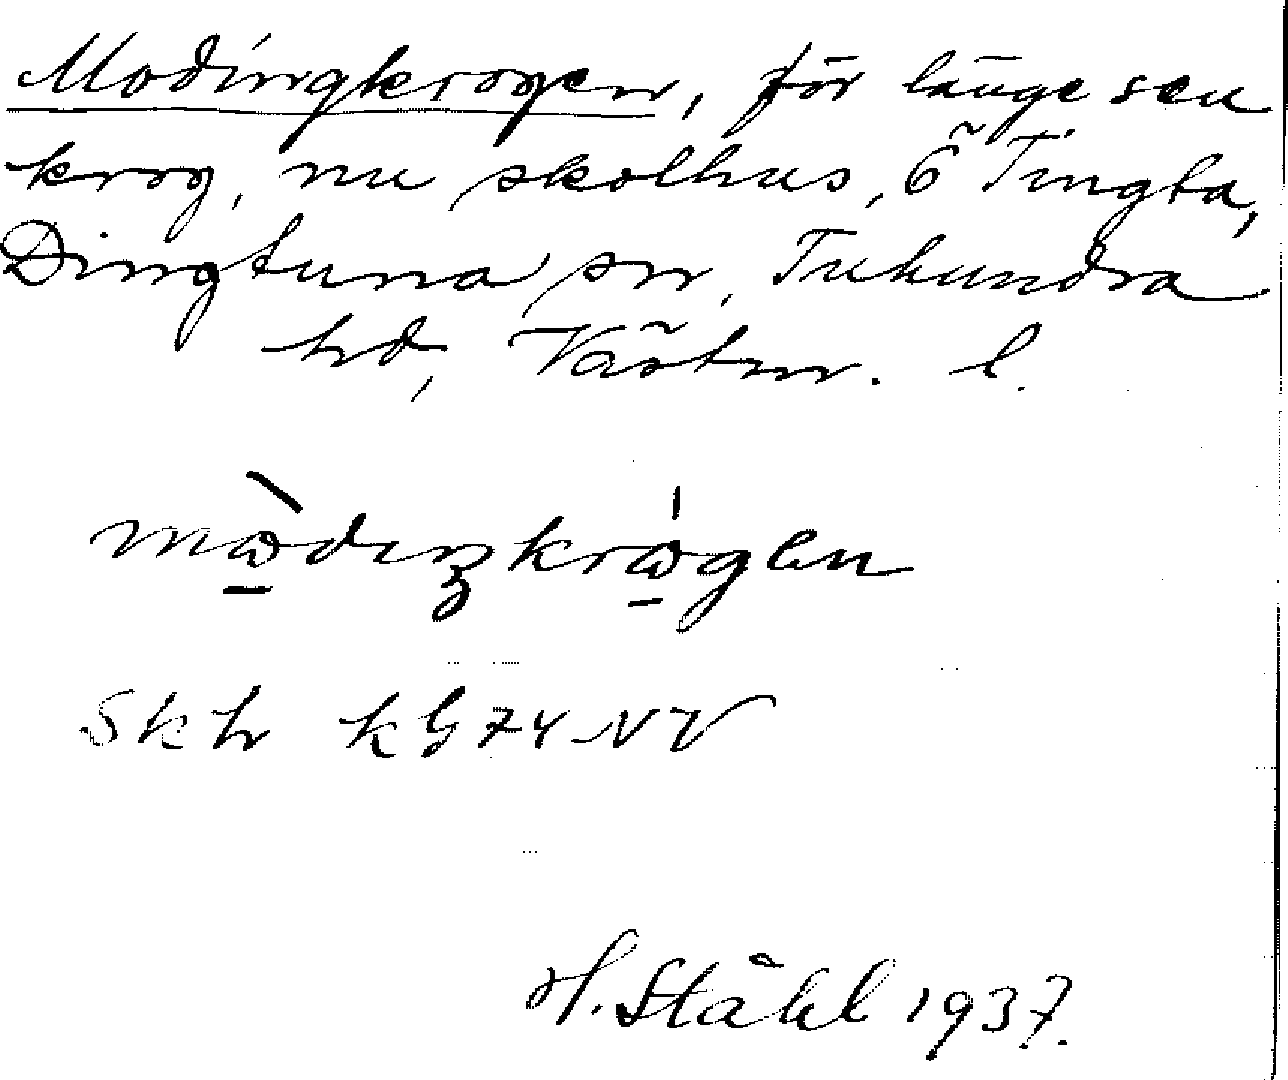 Modingkrogen, för länge sen
krog, nu skolhus, Ö Tingta,
Dingtuna sn, Tuhundra
hd, Västm. l.
Skh kG74 NV
H. Ståhl 1937.